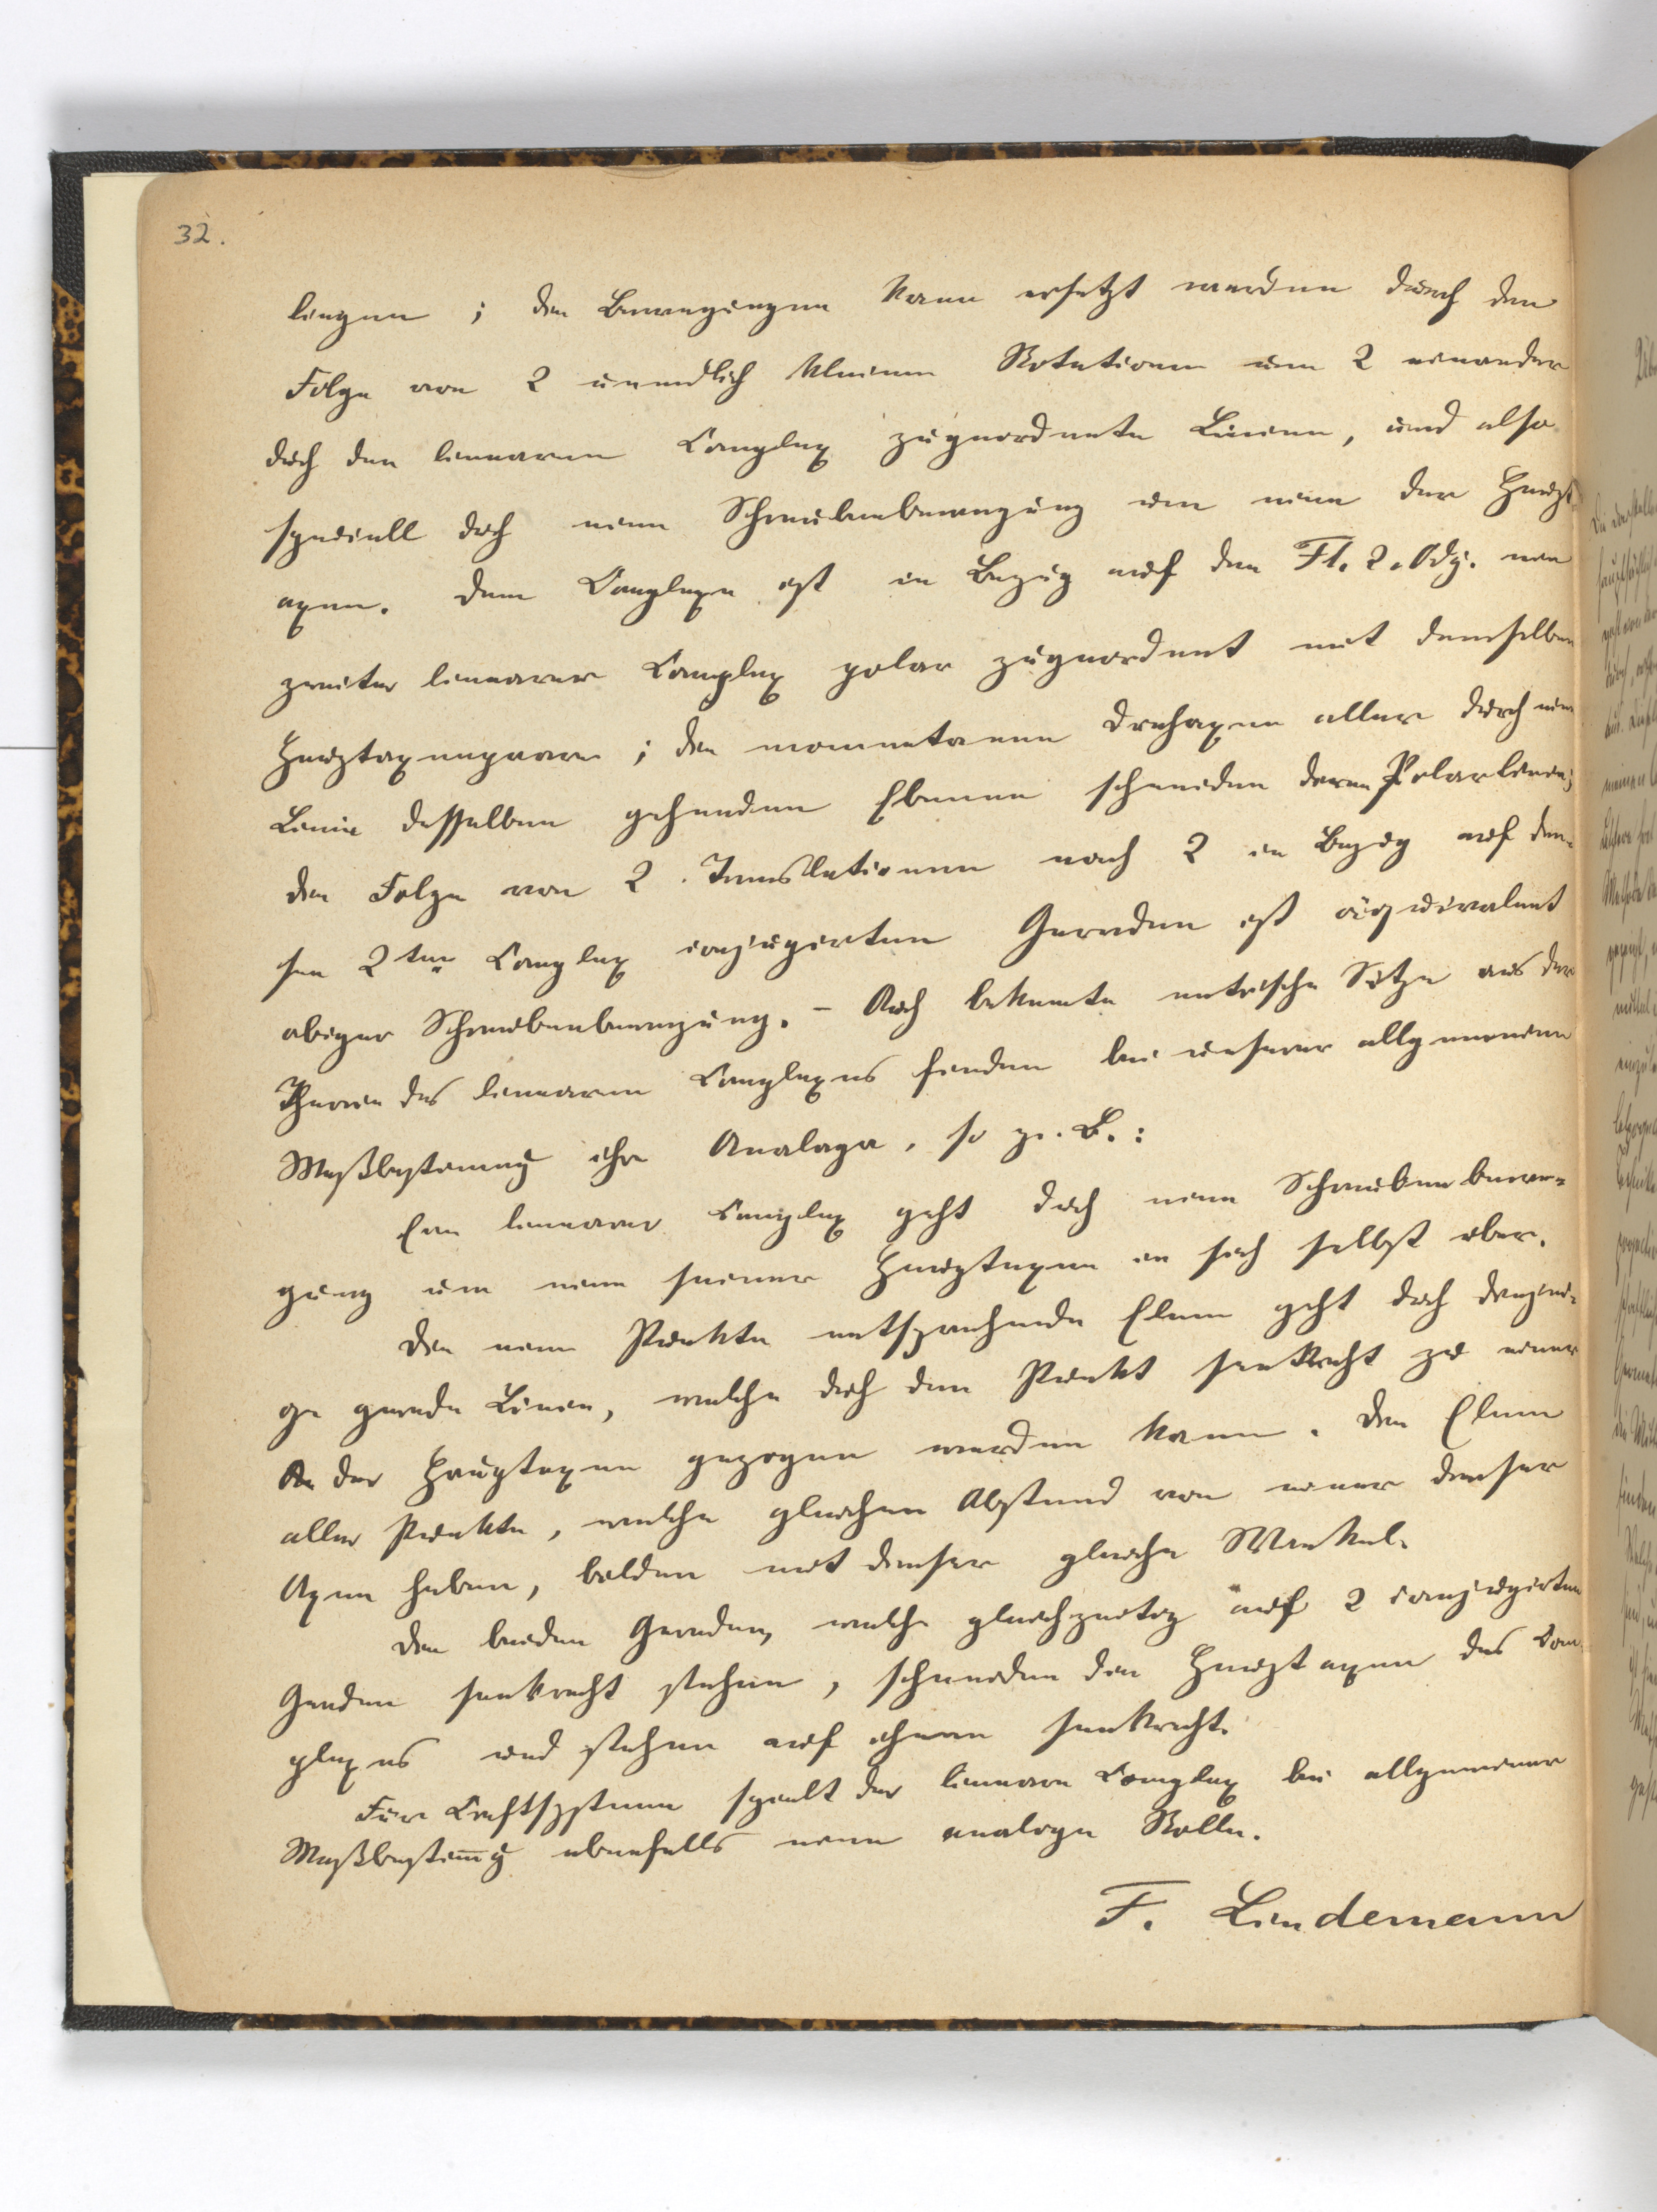 32.
liegen ; die Bewegungen kann ersetzt werden durch die
Folge von 2 unendlich kleinen Rotationen um 2 einander
dch den linearen Complex zugeordnete Linien, und also
speciell dch eine Schraubenbewegung um eine der Haupt-
axen. Dem Complexe ist in Bezug auf die Fl. 2. Odg. ein
zweiter linearer Complex polar zugeordnet mit demselben
Hauptaxenpaare ; die momentanen Drehaxen aller durch eine
Linie desselben gehenden Ebenen schneiden deren Polarlinie;
die Folge von 2 Translationen nach 2 in Bezug auf die-
sen 2ten Complex conjugirten Geraden ist äquivalent
obiger Schraubenbewegung. – Auch bekannte metrische Sätze aus der
Theorie des linearen Complexes finden bei unserer allgemeinen
Maßbestimmung ihre Analoga, so z. B. :
Ein linearer Complex geht dch eine Schraubenbewe-
gung um eine seiner Hauptaxen in sich selbst über.
Die einem Punkte entsprechende Ebene geht dch diejeni-
ge gerade Linie, welche dch den Punkt senkrecht zu einer
der Hauptaxen gezogen werden kann. Die Ebenen
aller Punkte, welche gleichen Abstand von einer dieser
Axen haben, bilden mit dieser gleiche Winkel.
Die beiden Geraden, welche gleichzeitig auf 2 conjugirten
Geraden senkrecht stehen, schneiden die Hauptaxen des Com-
plexes und stehen auf ihnen senkrecht.
Für Kraftsysteme spielt der lineare Complex bei allgemeiner
Maßbestim̅g ebenfalls eine analoge Rolle.
F. Lindemann